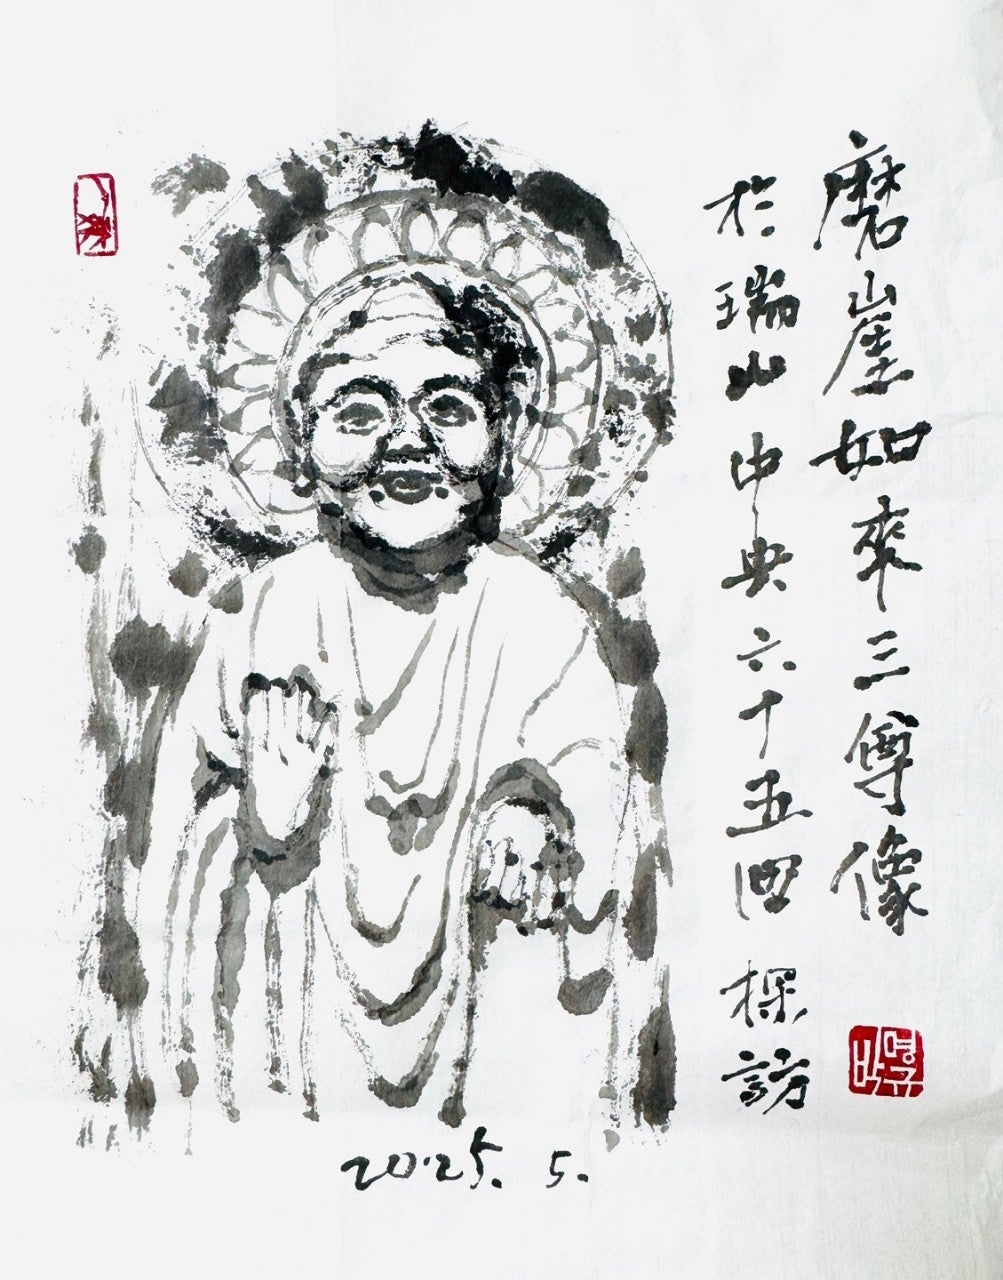 磨崖如來三尊像
於瑞山中央六十五回探訪
2025. 5.